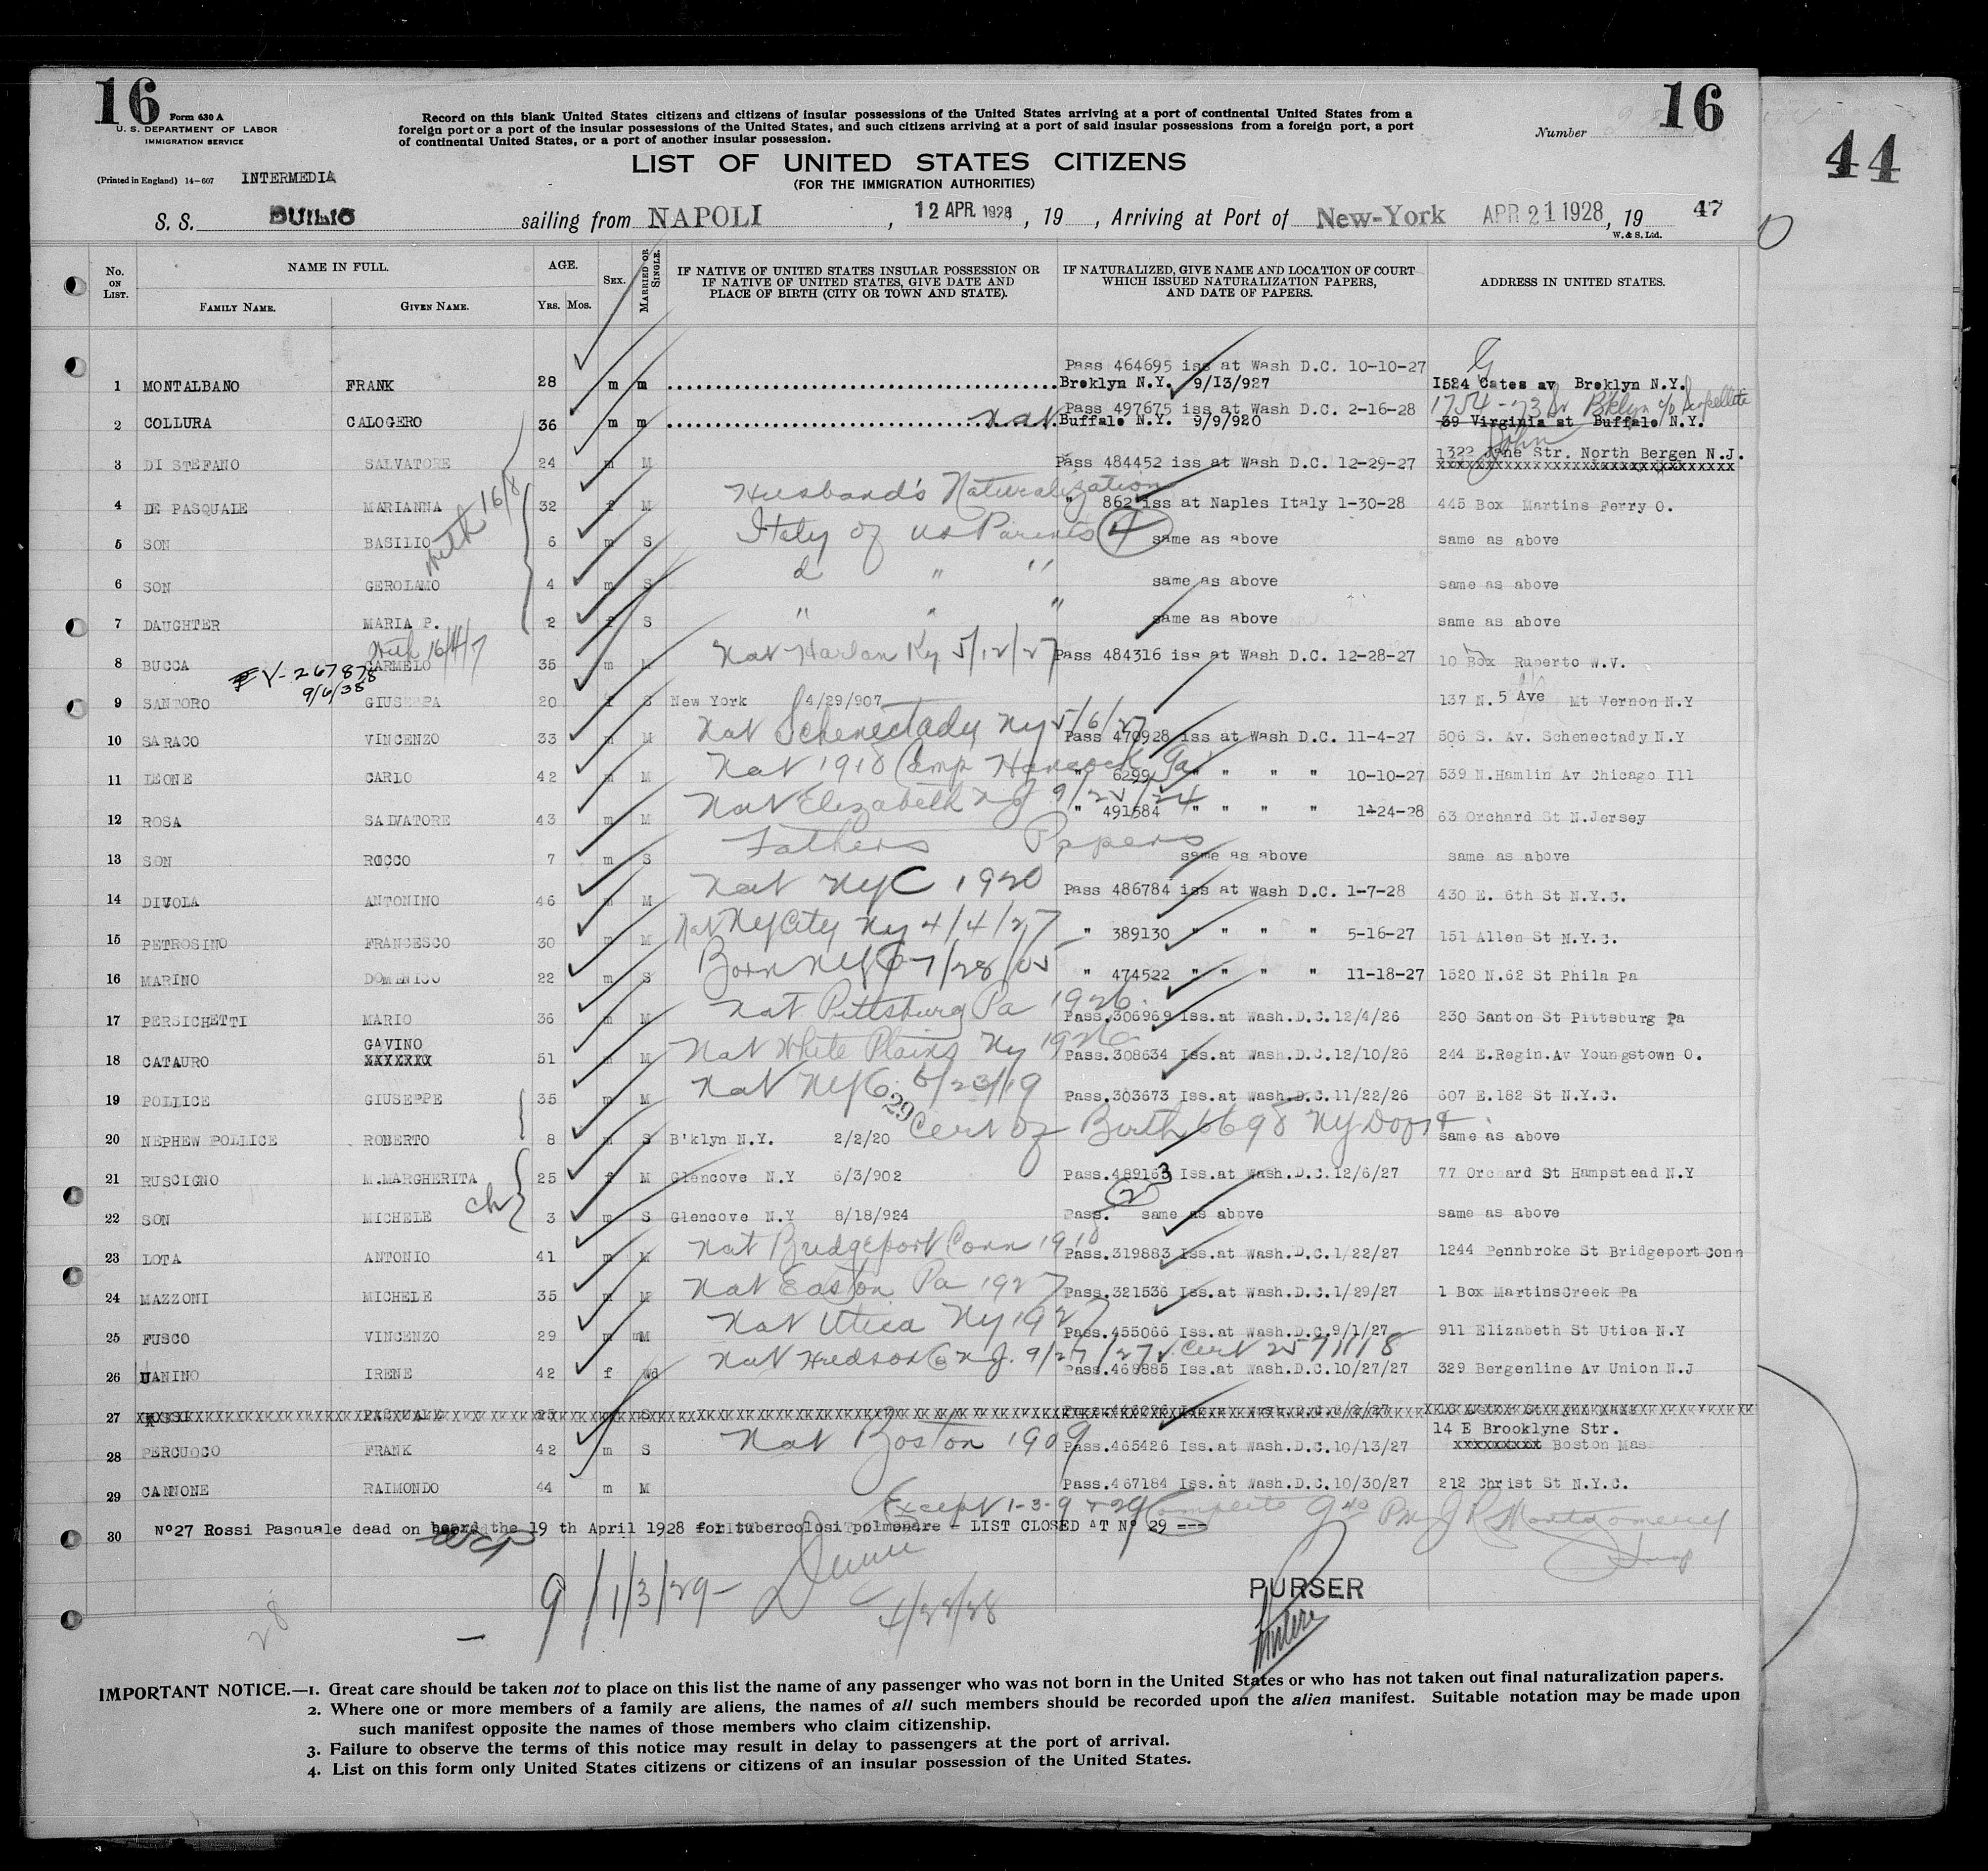 16
Form 630 A
U. S. DEPARTMENT OF LABOR
IMMIGRATION SERVICE
Record on this blank United States citizens and citizens of insular possessions of the United States arriving at a port of continental United States from a
foreign port or a port of the insular possessions of the United States, and such citizens arriving at a port of said insular possessions from a foreign port, a port
of continental United States, or a port of another insular possession.
Number
16
44
LIST OF UNITED STATES CITIZENS
(FOR THE IMMIGRATION AUTHORITIES)
(Printed in England) 14-607 INTERMEDIA
S. S. DUILIO sailing from NAPOLI, 12 APR. 1928, 19 , Arriving at Port of New-York APR 21 1928, 19 47
W. & S. Ltd.
No. ON LIST. NAME IN FULL. FAMILY NAME. GIVEN NAME. AGE. YRS. MOS. SEX. MARRIED OR SINGLE.
IF NATIVE OF UNITED STATES INSULAR POSSESSION OR IF NATIVE OF UNITED STATES, GIVE DATE AND PLACE OF BIRTH (CITY OR TOWN AND STATE).
IF NATURALIZED, GIVE NAME AND LOCATION OF COURT WHICH ISSUED NATURALIZATION PAPERS, AND DATE OF PAPERS.
ADDRESS IN UNITED STATES.
Pass 464695 iss at Wash D.C. 10-10-27 G
1 MONTALBANO FRANK 28 m m Broklyn N.Y. 9/13/927 1524 Cates av Broklyn N.Y.
Pass 497675 iss at Wash D.C. 2-16-28 1754 - 73 St Bklyn c/o
2 COLLURA CALOGERO 36 m m nat. Buffalo N.Y. 9/9/920 39 Virginia st Buffalo N.Y.
John
3 DI STEFANO SALVATORE 24 m M Pass 484452 iss at Wash D.C. 12-29-27 1322 Jane Str. North Bergen N.J.
with 16/8
4 DE PASQUALE MARIANNA 32 f M Husband's Naturalization " 862 iss at Naples Italy 1-30-28 445 Box Martins Ferry O.
5 SON BASILIO 6 m S Italy of US Parents 4 same as above same as above
6 SON GEROLAMO 4 m S d " " same as above same as above
7 DAUGHTER MARIA P. 2 f S " " " same as above same as above
with 16/4/7
8 BUCCA CARMELO 35 m M Nat Harlan Ky 5/12/27 Pass 484316 iss at Wash D.C. 12-28-27 10 Box Ruperto W.V.
V-267878
9/6/38
9 SANTORO GIUSEPPA 20 f S New York 4/29/907 137 N. 5 Ave Mt Vernon N.Y
10 SARACO VINCENZO 33 m M Nat Schenectady Ny 5/6/27 Pass 470928 iss at Wash D.C. 11-4-27 506 S. Av. Schenectady N.Y
11 LEONE CARLO 42 m M Nat 1918 Camp Hancock Ga " 6299 " " " " 10-10-27 539 N.Hamlin Av Chicago Ill
12 ROSA SALVATORE 43 m M Nat Elizabeth NJ 9/25/24 " 491584 " " " " 1-24-28 63 Orchard St N.Jersey
13 SON ROCCO 7 m S Fathers Papers same as above same as above
14 DIVOLA ANTONINO 46 m M Nat NYC 1920 Pass 486784 iss at Wash D.C. 1-7-28 430 E. 6th St N.Y.C.
15 PETROSINO FRANCESCO 30 m M Nat NY City Ny 4/4/27 " 389130 " " " " 5-16-27 151 Allen St N.Y.C.
16 MARINO DOMENICO 22 m S Born NYC 7/28/05 " 474522 " " " " 11-18-27 1520 N.62 St Phila Pa
17 PERSICHETTI MARIO 36 m M Nat Pittsburg Pa 1926. Pass.306969 Iss.at Wash.D.C.12/4/26 230 Santon St Pittsburg Pa
GAVINO
18 CATAURO XXXXXXX 51 m M Nat White Plains Ny 1926 Pass.308634 Iss.at Wash.D.C.12/10/26 244 E.Regin.Av Youngstown O.
19 POLLICE GIUSEPPE 35 m M Nat NYC 5/23/19 Pass.303673 Iss.at Wash.D.C.11/22/26 607 E.182 St N.Y.C.
20 NEPHEW POLLICE ROBERTO 8 m S B'klyn N.Y. 2/2/20 29 Cert of Birth 6698 NY same as above
21 RUSCIGNO M.MARGHERITA 25 f M Glencove N.Y 6/3/902 Pass.489163 Iss.at Wash.D.C.12/6/27 77 Orchard St Hampstead N.Y
ch 2
22 SON MICHELE 3 m S Glencove N.Y 8/18/924 Pass. same as above same as above
23 LOTA ANTONIO 41 m M Nat Bridgeport Conn 1910 Pass.319883 Iss.at Wash.D.C.1/22/27 1244 Pennbroke St Bridgeport Conn
24 MAZZONI MICHELE 35 m M Nat Easton Pa 1927 Pass.321536 Iss.at Wash.D.C.1/29/27 1 Box MartinsCreek Pa
25 FUSCO VINCENZO 29 m M Nat Utica Ny 1927 Pass.455066 Iss.at Wash.D.C.9/1/27 911 Elizabeth St Utica N.Y
26 UANINO IRENE 42 f Wd Nat Hudson Co NJ. 9/27/27 Cert 2571118 Pass.468885 Iss.at Wash.D.C.10/27/27 329 Bergenline Av Union N.J
27
14 E Brooklyne Str.
28 PERCUOCO FRANK 42 m S Nat Boston 1909 Pass.465426 Iss.at Wash.D.C.10/13/27 XXXXXXXXX Boston Mass
29 CANNONE RAIMONDO 44 m M Pass.467184 Iss.at Wash.D.C.10/30/27 212 Christ St N.Y.C.
Except 1-3-9 + 29 Complete 9 40 PM J R Montgomery
30 N°27 Rossi Pasquale dead on board the 19 th April 1928 for tubercolosi polmonare - LIST CLOSED AT N° 29 ---
9/1/3/29-
4/23/28
28
PURSER
IMPORTANT NOTICE.—1. Great care should be taken not to place on this list the name of any passenger who was not born in the United States or who has not taken out final naturalization papers.
2. Where one or more members of a family are aliens, the names of all such members should be recorded upon the alien manifest. Suitable notation may be made upon
such manifest opposite the names of those members who claim citizenship.
3. Failure to observe the terms of this notice may result in delay to passengers at the port of arrival.
4. List on this form only United States citizens or citizens of an insular possession of the United States.